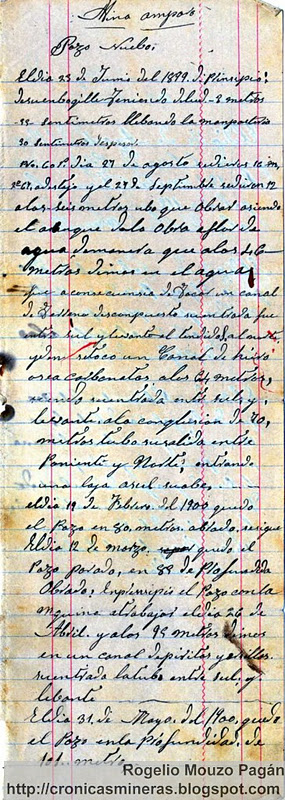 Mina amparo
Pozo Nuebo:
El dia 23 de Junio del 1899 di Prinsipio
desuenboquille teniendo delud-2 metros
sentimetros llebando la manposteria
30 sentimetros despesor
dia 27 de agosto 16 m,
adestajo y el 24 de Septiembre 12
alos seis metros ubo que Obrar
el que dalo Obra aflor de
agua, demanera que alos 46
metros dimos en el agua
que a consecuensia de un canal
de descompuesto su entrada fue
entre sul y lebante al tendido, al norte
y un un Canal de hierro
osea carbonatos alos 64 metros,
siendo suentrada entre sul, y
lebante. ala conglusion de 70,
metros tubo susalida entre
Poniente y Norte: entrando
una laja asul suabe.
eldia 19 de Febrero del 1900 quedo
el Pozo en 80 metros abrado, se sigue
El dia 12 de marzo quedo el
Pozo parado, en 88 de Profundida
Obrado; Enprinsipio el Pozo con la
maquina atrabajar eldia 26 de
Abril. y alos 95 metros dimos
en un canal depiritas y
su entrada la tubo entre sul, y
lebante
El dia 31 de Mayo del 1900, quedo
el Pozo en la Profundidad, de
metros
Rogelio Mouzo Pagán
http://cronicasmineras.blogspot.com